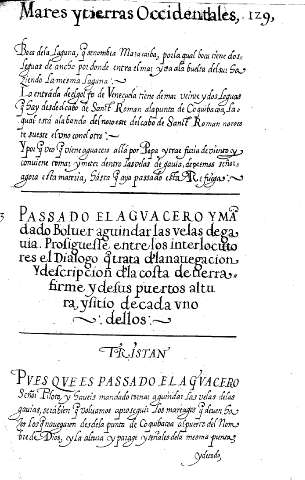 Mares y tierras Occidentales, 129,
Boca dela Laguna, q̃ se nombra Maracaibo, por la qual boca tiene dos
leguas de ancho por donde entra el mar, y da ala buelta del sus ha
ziendo la mesma Laguna.
La entrada del golfo de Venecuela tiene de mar veinte y dos leguas
q̃ hay desde el cabo de Sanct Roman ala punta de Coquibacoa, la
qual está ala banda del noroeste del cabo de Sanct Roman norues
te sueste el vno con el otro.
Y por q̃ viene aguacero alla por Popa y trae fuzia de viento y
conviene tomar y meter dentro las velas de gavia, dexemos
agora esta materia, hasta q̃ aya passado esta Refriega.
PASSADO EL AGVACERO Y MÃ
dado Boluer aguindar las velas dega
uia. Prosiguesse entre los interlocuto
res el Dialogo q̃ trata dela nauegacion
Y descripcion dela costa de tierra
firme y desus puertos altu
ra, y sitio de cada vno
dellos
TRISTAN
PVES QVE ES PASSADO EL AGVACERO
Señor Piloto, y haueis mandado tornar aguindar las velas delas
gauias, será bien q̃ voluamos a proseguir los mareages q̃ deuen ha
zer los q̃ nauegan desde la punta de Coquibacoa al puerto del Nom
bre de Dios, y la altura y parage y señales dela mesma punta
y dende